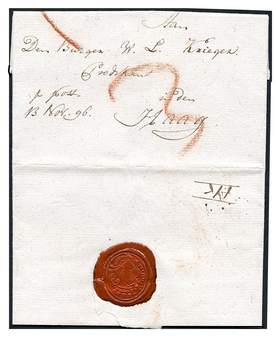 Aan
Den Burger W. L. Krieger
Predikant
p post in den
13 Nov. 96. Haag
3